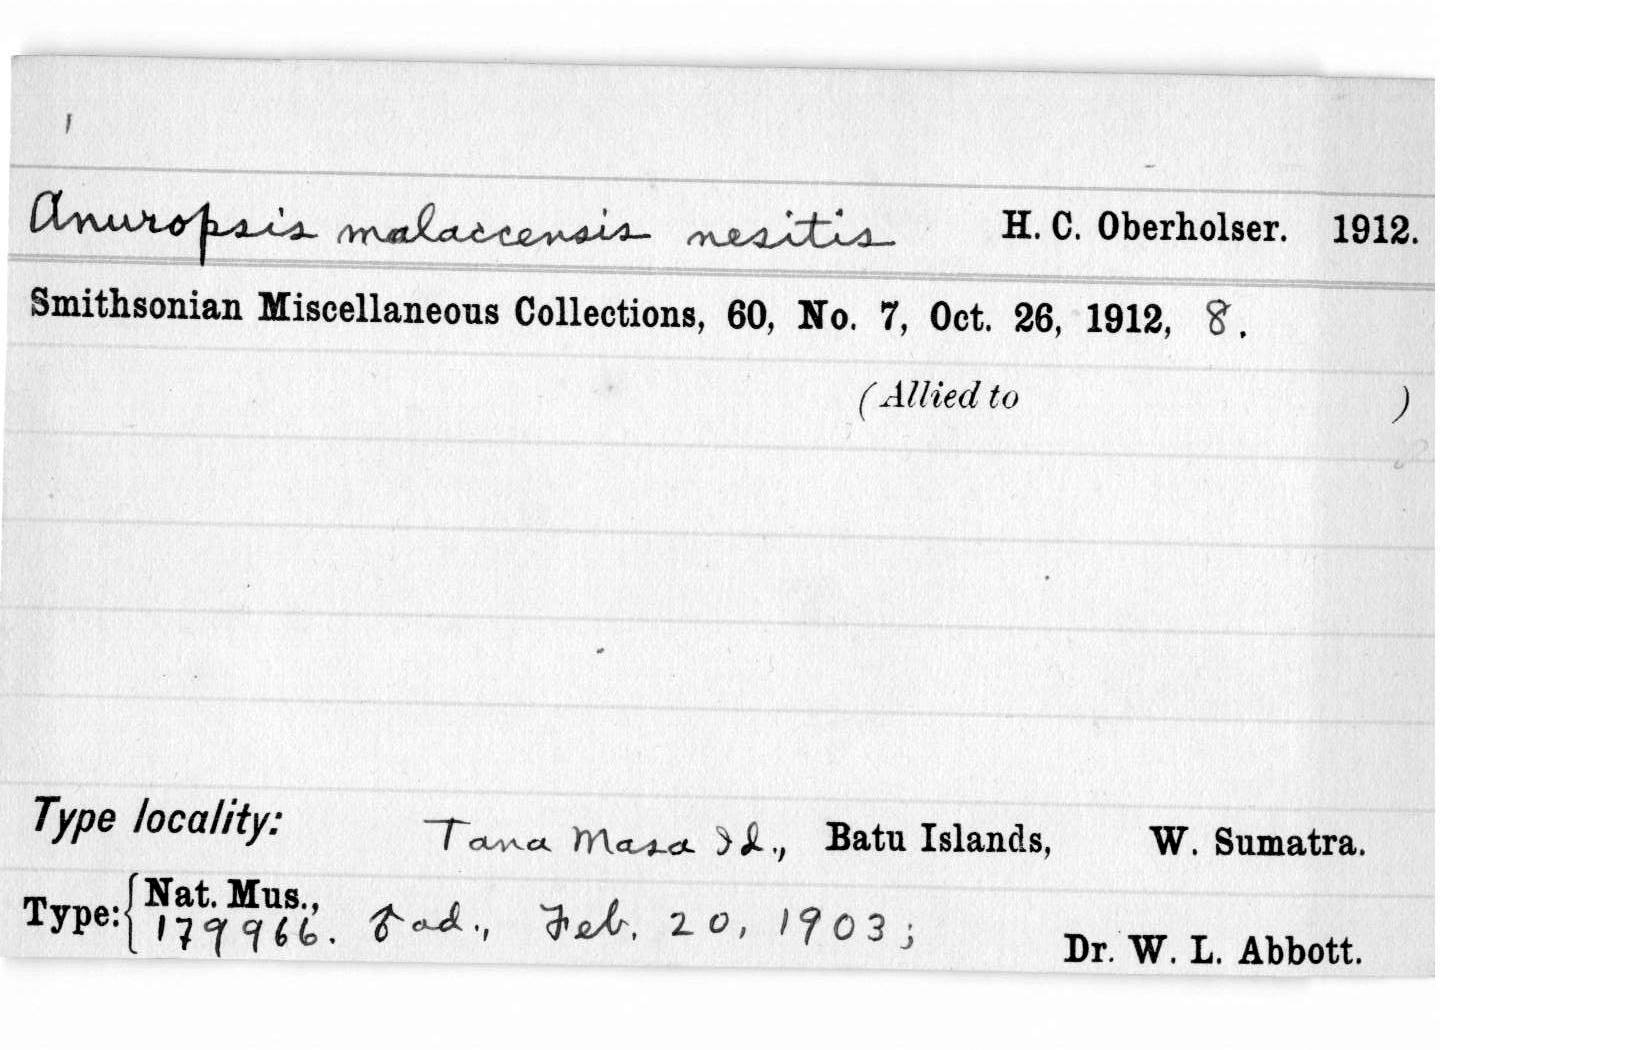 Anuropsis malaccensis nesitis H. C. Oberholser. 1912.
Smithsonian Miscellaneous Collections, 60, No. 7, Oct. 26, 1912, 8.
(Allied to )
Type locality: Tana Masa Id., Batu Islands, W. Sumatra.
Type: { Nat. Mus.,
179966. ♂ ad., Feb. 20, 1903; Dr. W. L. Abbott.